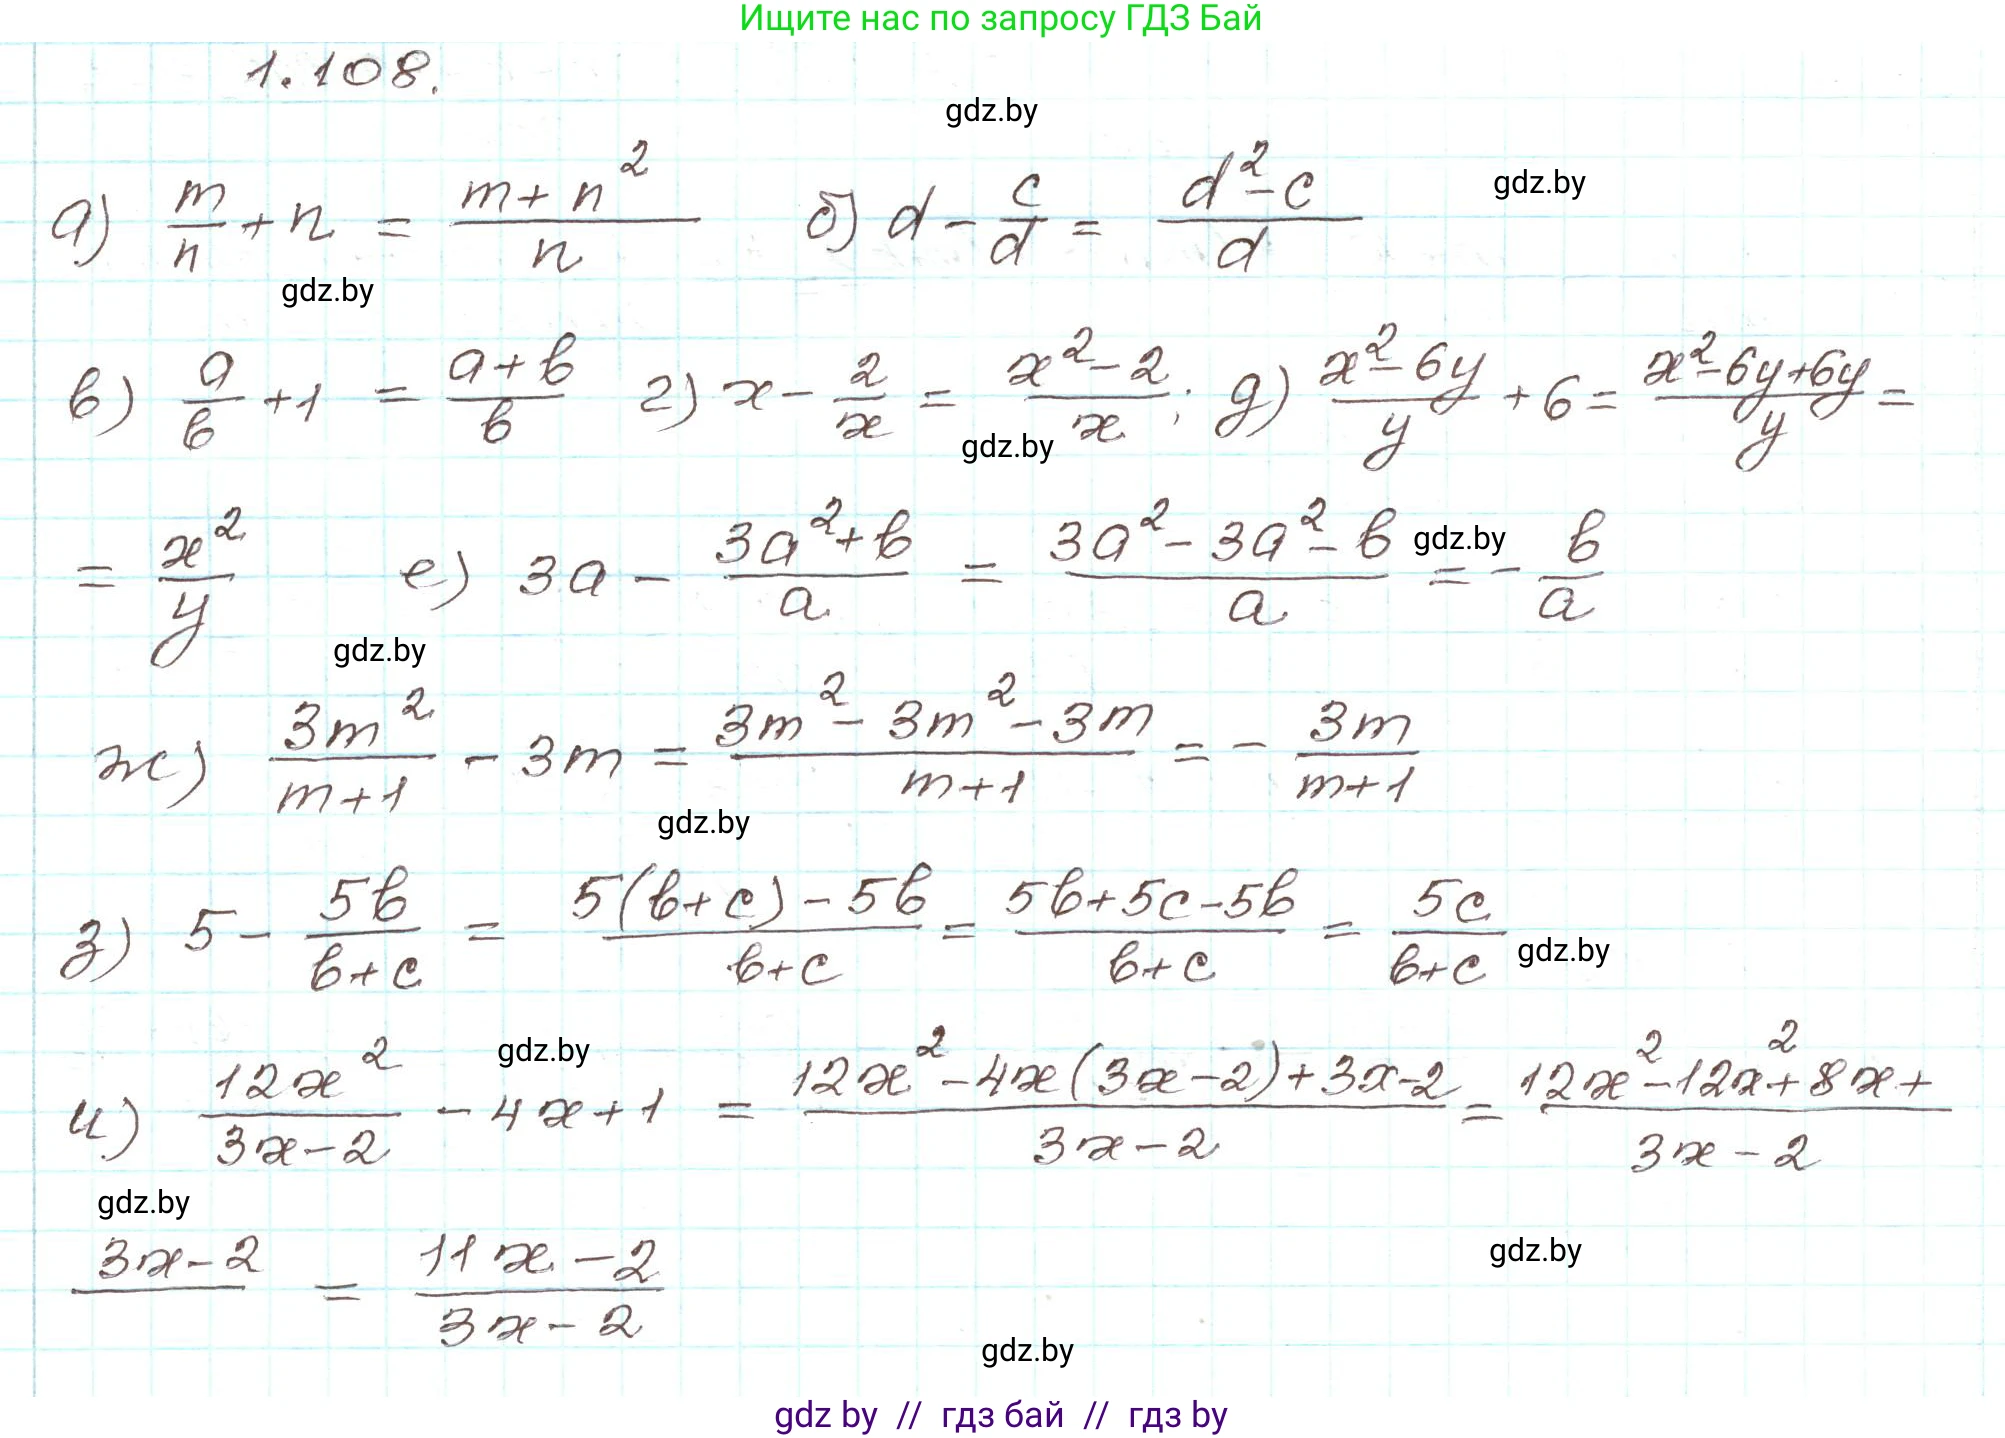 Ищите нас по запросу ГДЗ Бай
1.108.
gdz.by
а) m/n + n = (m + n²)/n б) d - c/d = (d² - c)/d gdz.by
gdz.by
в) a/b + 1 = (a + b)/b г) x - 2/x = (x² - 2)/x ; д) (x² - 6y)/y + 6 = (x² - 6y + 6y)/y =
gdz.by
= x²/y е) 3a - (3a² + b)/a = (3a² - 3a² - b)/a = - b/a gdz.by
gdz.by
ж) 3m²/(m + 1) - 3m = (3m² - 3m² - 3m)/(m + 1) = - 3m/(m + 1)
gdz.by
з) 5 - 5b/(b + c) = (5(b + c) - 5b)/(b + c) = (5b + 5c - 5b)/(b + c) = 5c/(b + c) gdz.by
gdz.by
и) 12x²/(3x - 2) - 4x + 1 = (12x² - 4x(3x - 2) + 3x - 2)/(3x - 2) = (12x² - 12x² + 8x +)/(3x - 2)
gdz.by
3x - 2 = (11x - 2)/(3x - 2) gdz.by
gdz.by
gdz by // гдз бай // гдз by